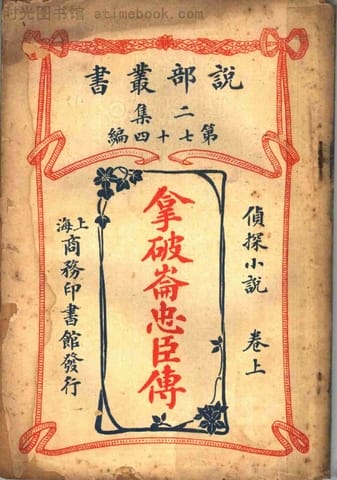 时光图书馆 atimebook.com
説部叢書
二集
第七十四編
偵探小説 卷上
拿破崙忠臣傳
上海商務印書館發行